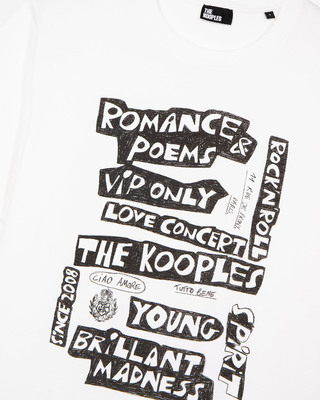 THE
KOOPLES
ROMANCE &
POEMS
ROCK'N'ROLL
VIP ONLY
PARIS
LOVE CONCERT
THE KOOPLES
CIAO AMORE
TUTTO BENE
SINCE 2008
YOUNG
SPIRIT
BRILLANT
MADNESS